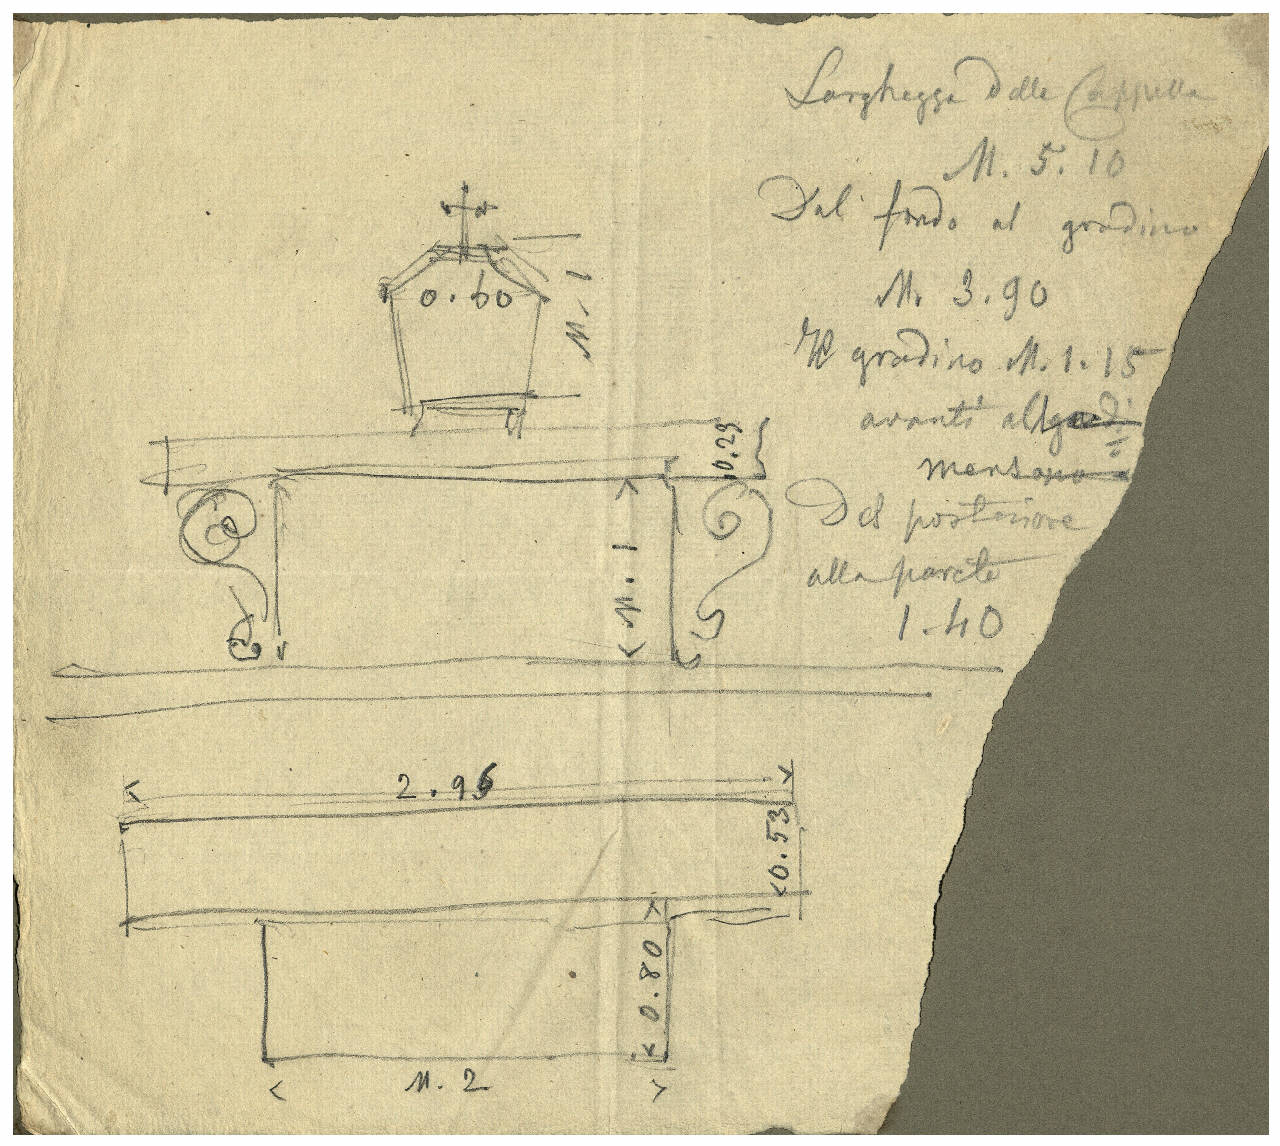 Larghezza della Cappella
M. 5.10
Dal fondo al gradino
M. 3.90
Il gradino M. 1.15
avanti al
Del posteriore
alla parete
1.40
0.60
M. 1
0.29
M. 1
2.95
0.53
0.80
M. 2